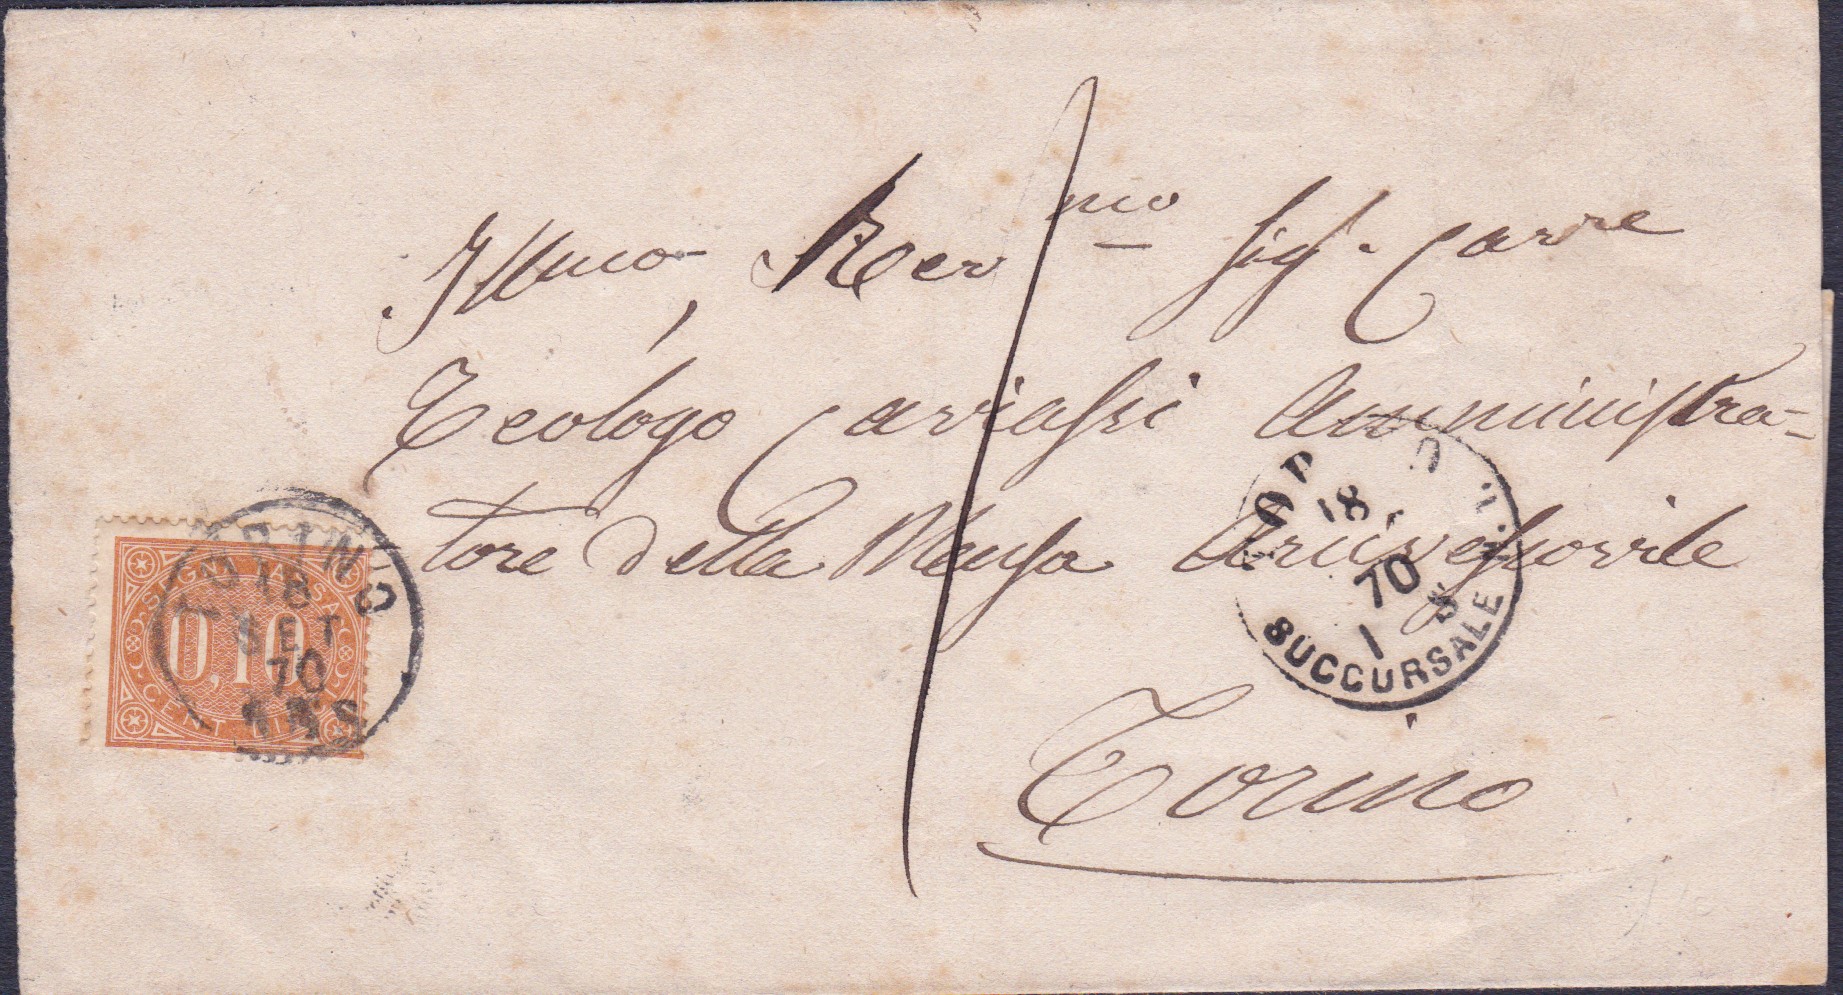 Illmo, Rev mo Sig. r Carre
Teologo Caviassi Amministra-
tore della Mensa Arcivescovile
Torino
SEGNATASSE
0,10
CENTESIMI
TORINO
18
SET
70
TORINO
18
70
1 S
SUCCURSALE N.1